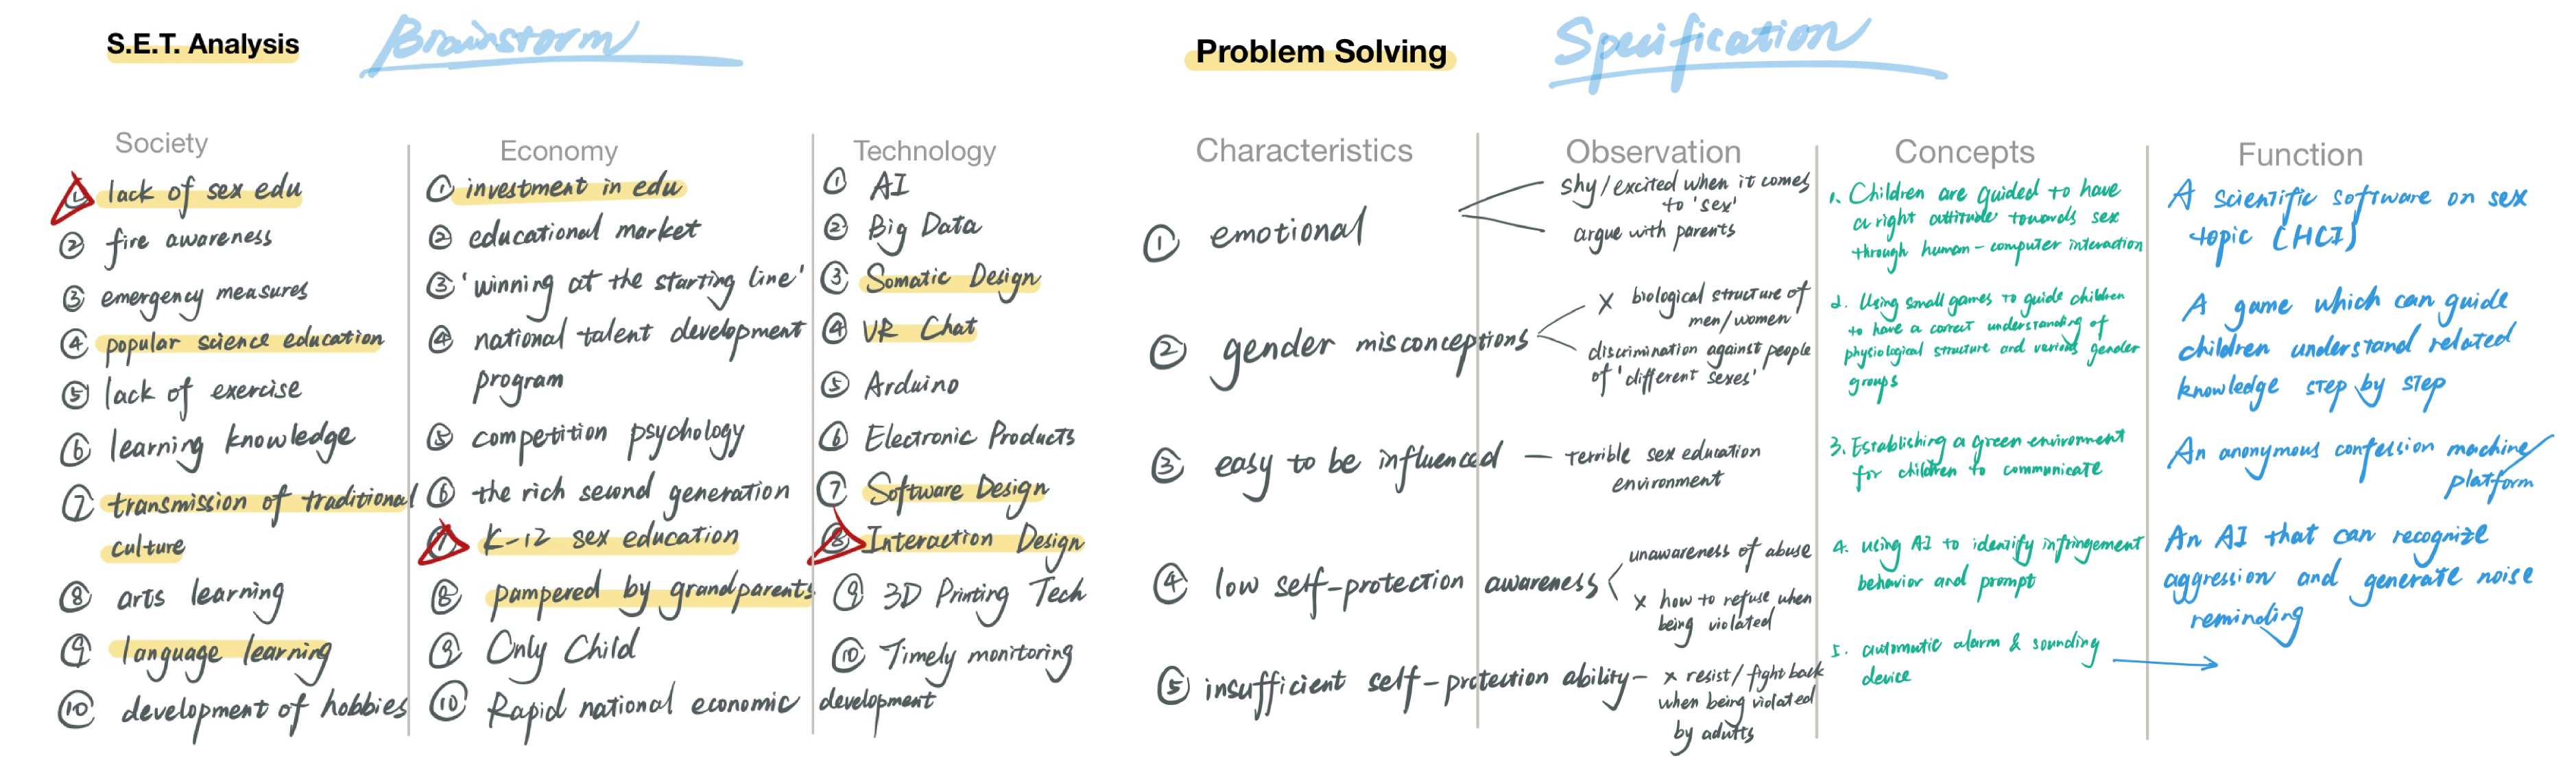 S.E.T. Analysis
Brainstorm
Society
① lack of sex edu
② fire awareness
③ emergency measures
④ popular science education
⑤ lack of exercise
⑥ learning knowledge
⑦ transmission of traditional
culture
⑧ arts learning
⑨ language learning
⑩ development of hobbies
Economy
① investment in edu
② educational market
③ 'winning at the starting line'
④ national talent development
program
⑤ competition psychology
⑥ the rich second generation
⑦ K-12 sex education
⑧ pampered by grandparents
⑨ Only Child
⑩ Rapid national economic development
Technology
① AI
② Big Data
③ Somatic Design
④ VR Chat
⑤ Arduino
⑥ Electronic Products
⑦ Software Design
⑧ Interaction Design
⑨ 3D Printing Tech
⑩ Timely monitoring
Problem Solving
Specification
Characteristics
① emotional
② gender misconceptions
③ easy to be influenced
④ low self-protection awareness
⑤ insufficient self-protection ability
Observation
shy/excited when it comes
to 'sex'
argue with parents
x biological structure of
men/women
discrimination against people
of 'different sexes'
terrible sex education
environment
unawareness of abuse
x how to refuse when
being violated
x resist/fight back
when being violated
by adults
Concepts
1. Children are guided to have
a right attitude towards sex
through human-computer interaction
2. Using small games to guide children
to have a correct understanding of
physiological structure and various gender
groups
3. Establishing a green environment
for children to communicate
4. using AI to identify infringement
behavior and prompt
5. automatic alarm & sounding
device
Function
A scientific software on sex
topic (HCI)
A game which can guide
children understand related
knowledge step by step
An anonymous confession machine/
platform
An AI that can recognize
aggression and generate noise
reminding